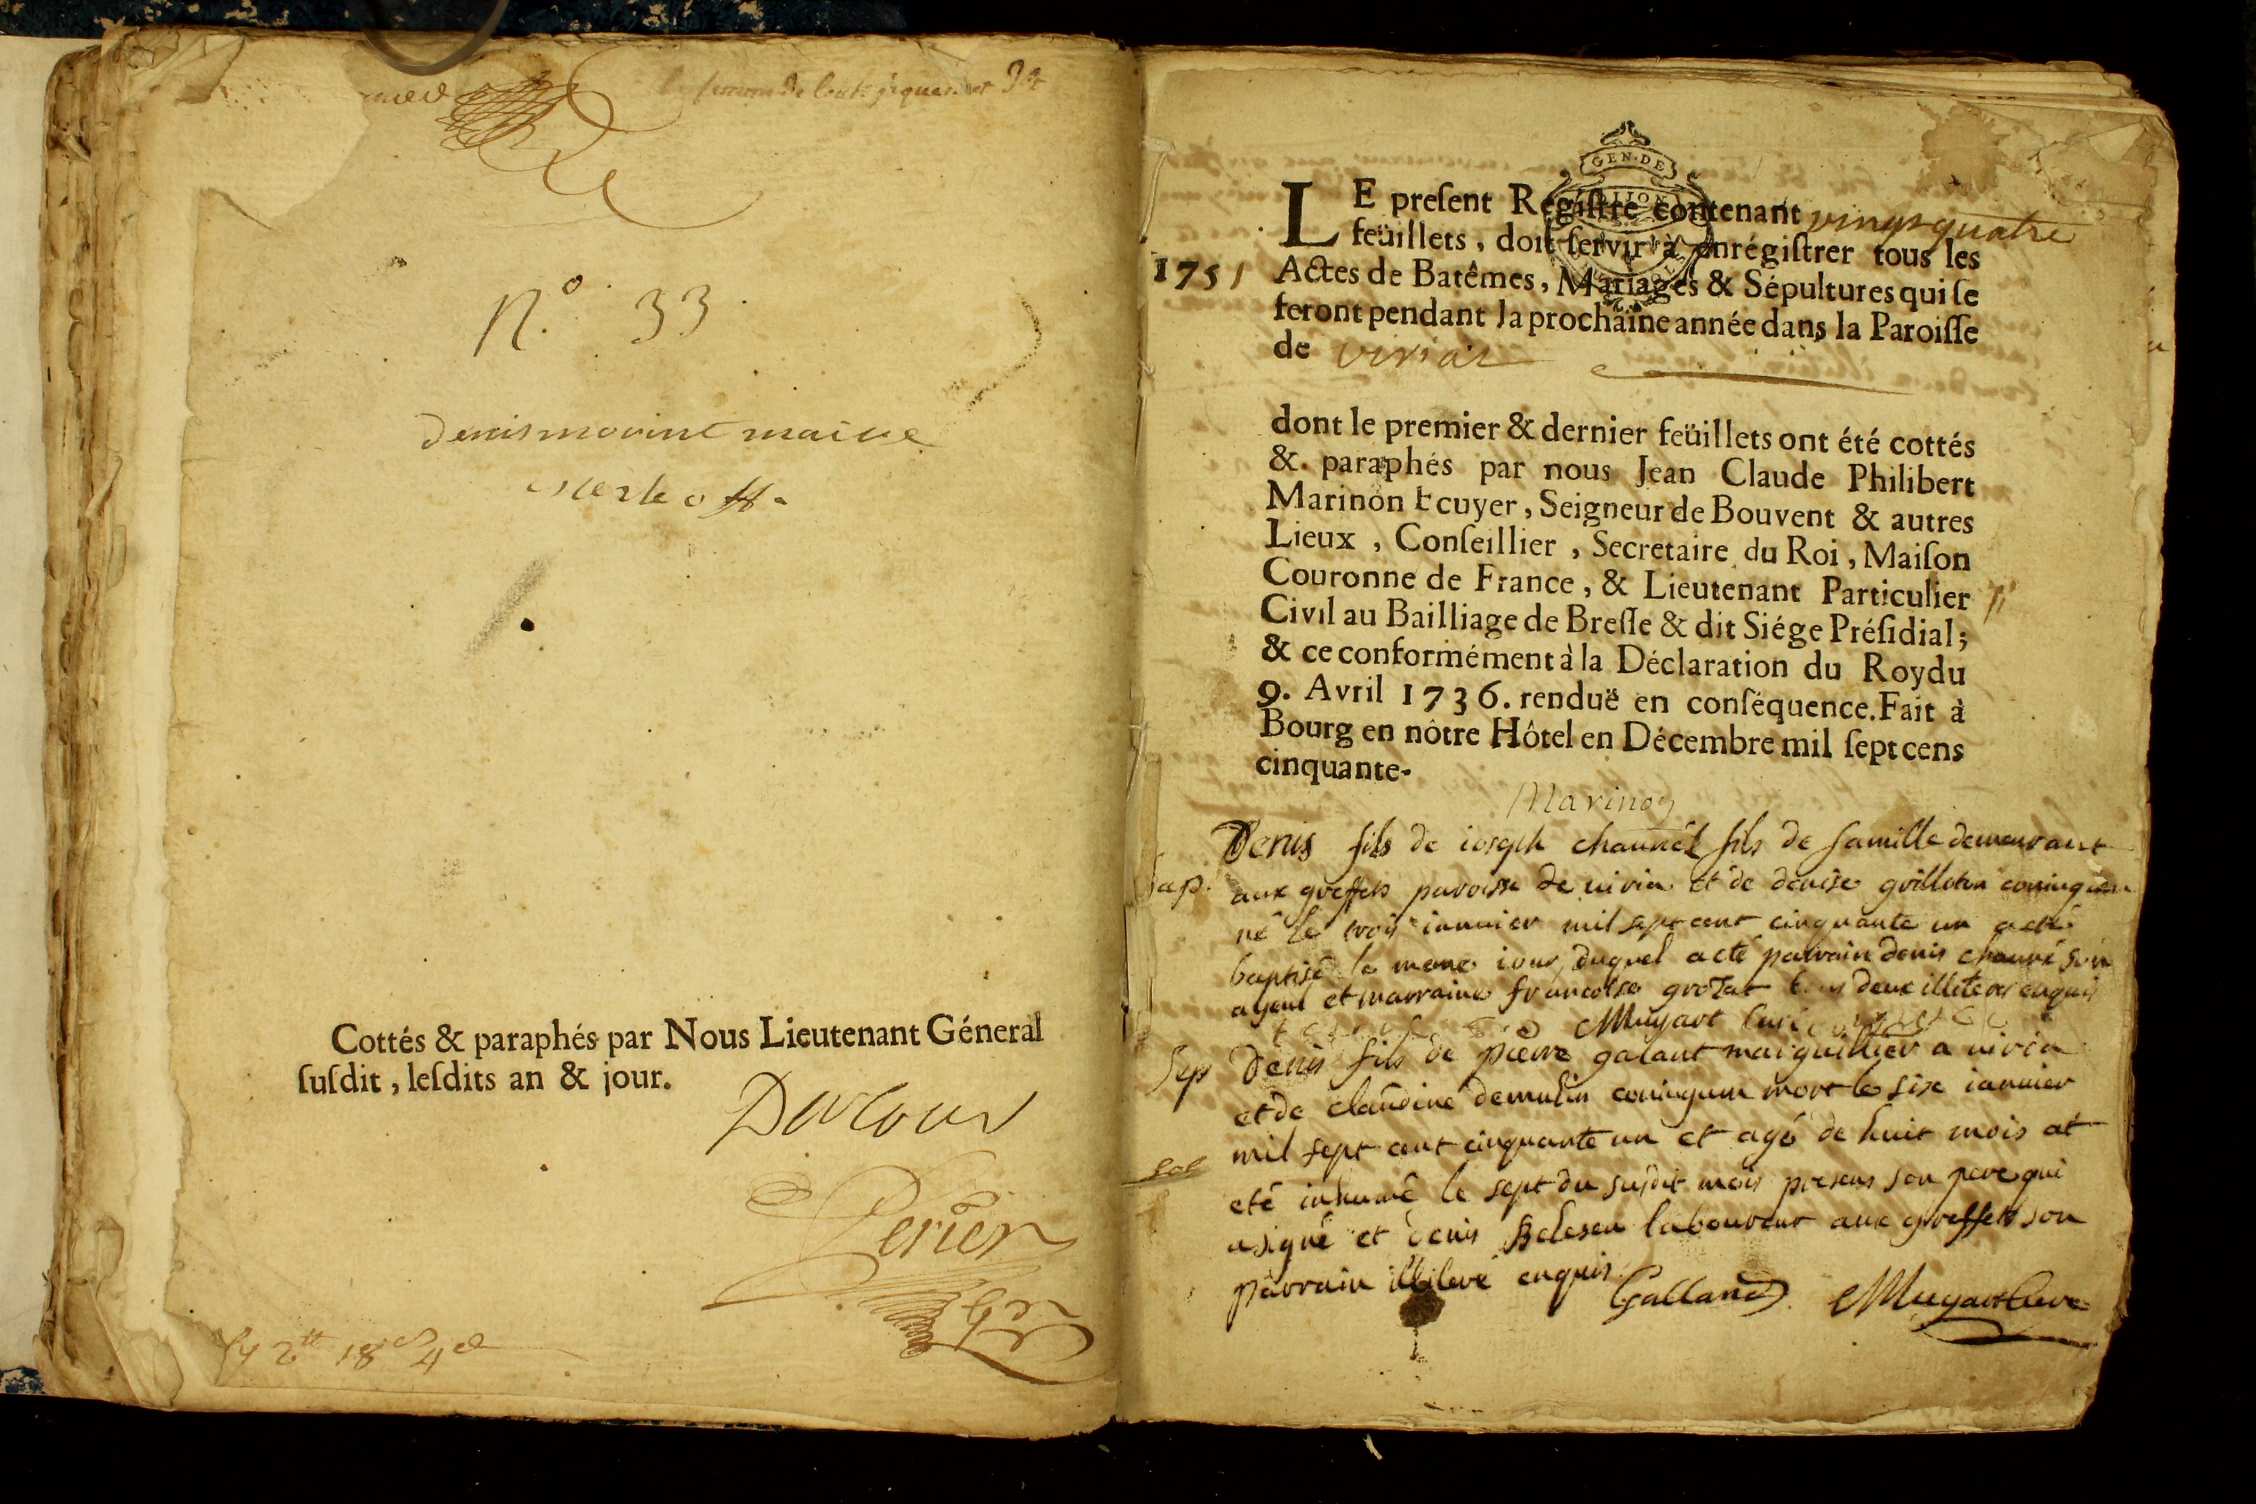 N.° 33
denis
Cottés & paraphés par Nous Lieutenant Géneral
ſuſdit, leſdits an & jour.
Perier
GEN·DE
DIJON
LE preſent Régiſtre contenant vingt quatre
feüillets, doit ſervir à enrégiſtrer tous les
1751
Actes de Batêmes, Mariages & Sépultures qui ſe
feront pendant la prochaine année dans la Paroiſſe
de viriat
dont le premier & dernier feüillets ont été cottés
&. paraphés par nous Jean Claude Philibert
Marinon Ecuyer, Seigneur de Bouvent & autres
Lieux, Conſeillier, Secretaire du Roi, Maiſon
Couronne de France, & Lieutenant Particulier
Civil au Bailliage de Breſſe & dit Siége Préſidial;
& ce conformément à la Déclaration du Roy du
9. Avril 1736. renduë en conſéquence. Fait à
Bourg en nôtre Hôtel en Décembre mil ſept cens
cinquante-
Marinon
Denis fils de ioseph fils de famille demeurant
bap. aux greffets paroisse de viria et de denise
né le trois ianvier mil sept cent cinquante un
baptisé le meme iour duquel acté parrain denis son
ayeul et marraine francoise tous deux illiteres enquis
Muyart Curé
Sep Denis fils de pierre galant marguillier a viria
et de claudine demulin mort le six ianvier
mil sept cent cinquante un et agé de huit mois at
eté inhumé le sept du susdit mois presens son pere qui
a signé et denis laboureur aux greffets son
parrain enquis
Galland Muyart Curé